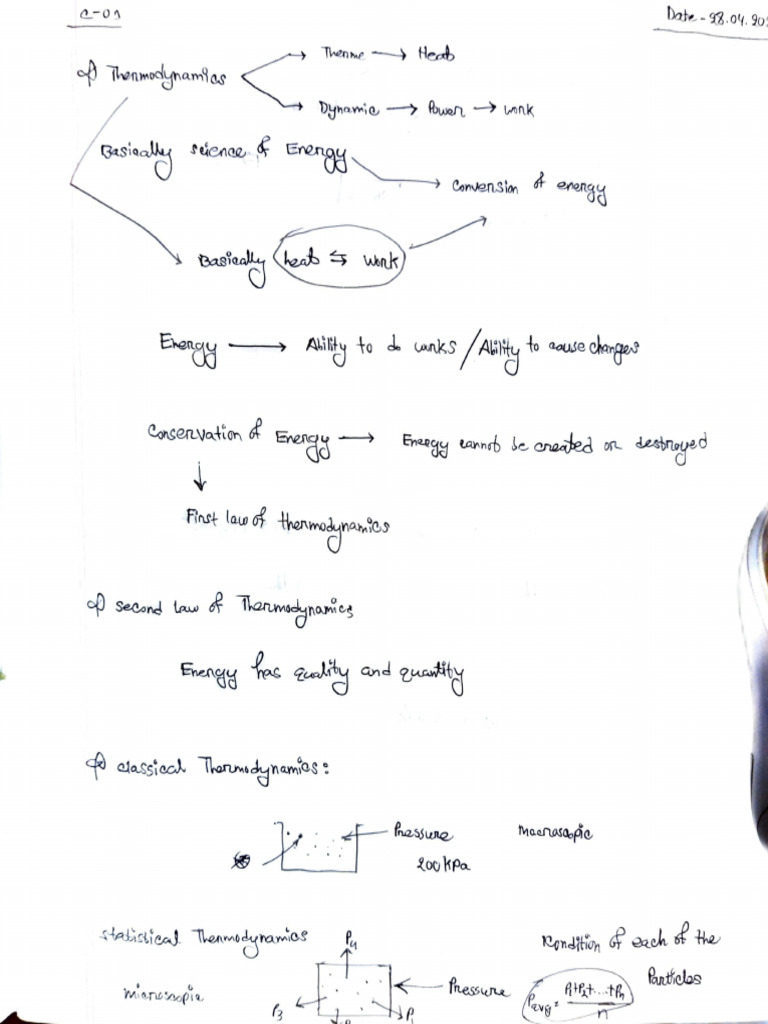 C-01
Date-28.04.20
Therme → Heat
Thermodynamics
Dynamic → Power → work
Basically science of Energy
Conversion of energy
Basically heat ⇆ work
Energy → Ability to do works / Ability to cause changes
Conservation of Energy → Energy cannot be created or destroyed
↓
First law of thermodynamics
Second law of Thermodynamics
Energy has quality and quantity
classical Thermodynamics:
Pressure macroscopic
200 kPa
statistical Thermodynamics
P4
Condition of each of the
Particles
microscopic
Pressure
Pavg = P1+P2+...+Pn / n
P3
P1